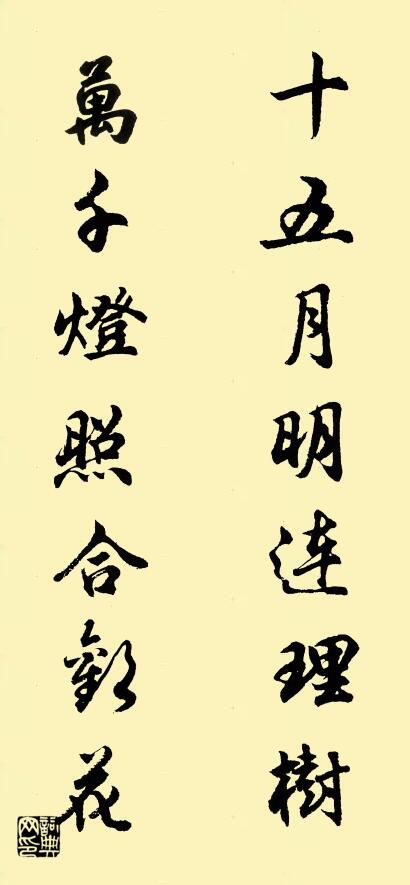 十五月明连理樹
萬千燈照合歡花